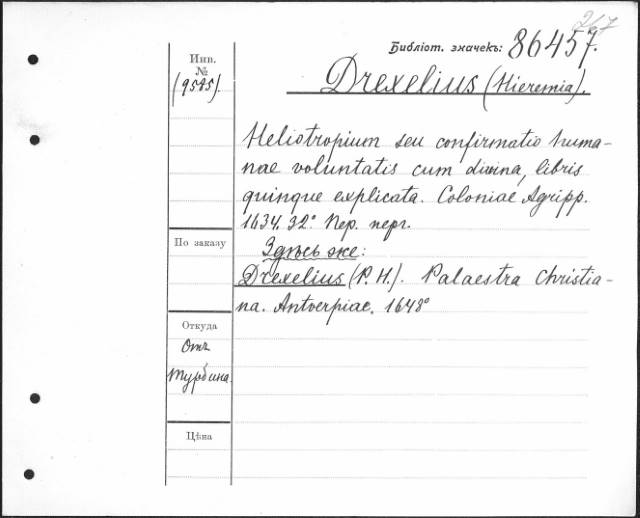 267
Библіот. значекъ: 86457.
Инв.
№
(9545).
Drexelius (Hieremia).
Heliotropium seu confirmatio huma-
nae voluntatis cum divina, libris
quinque explicata. Coloniae Agripp.
1634. 32° Пер. перг.
Здѣсь же:
Drexelius (P. H.). Palaestra Christia-
na. Antverpiae. 1648°
По заказу
Откуда
Отъ
Турбина.
Цѣна